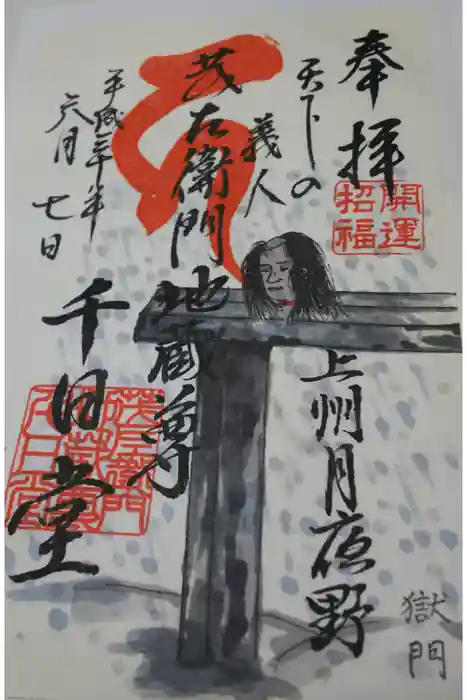 奉拝
開運
招福
上州月夜野
獄門
天下の
義人
茂左衛門地蔵尊
千日堂
平成三十年
六月七日